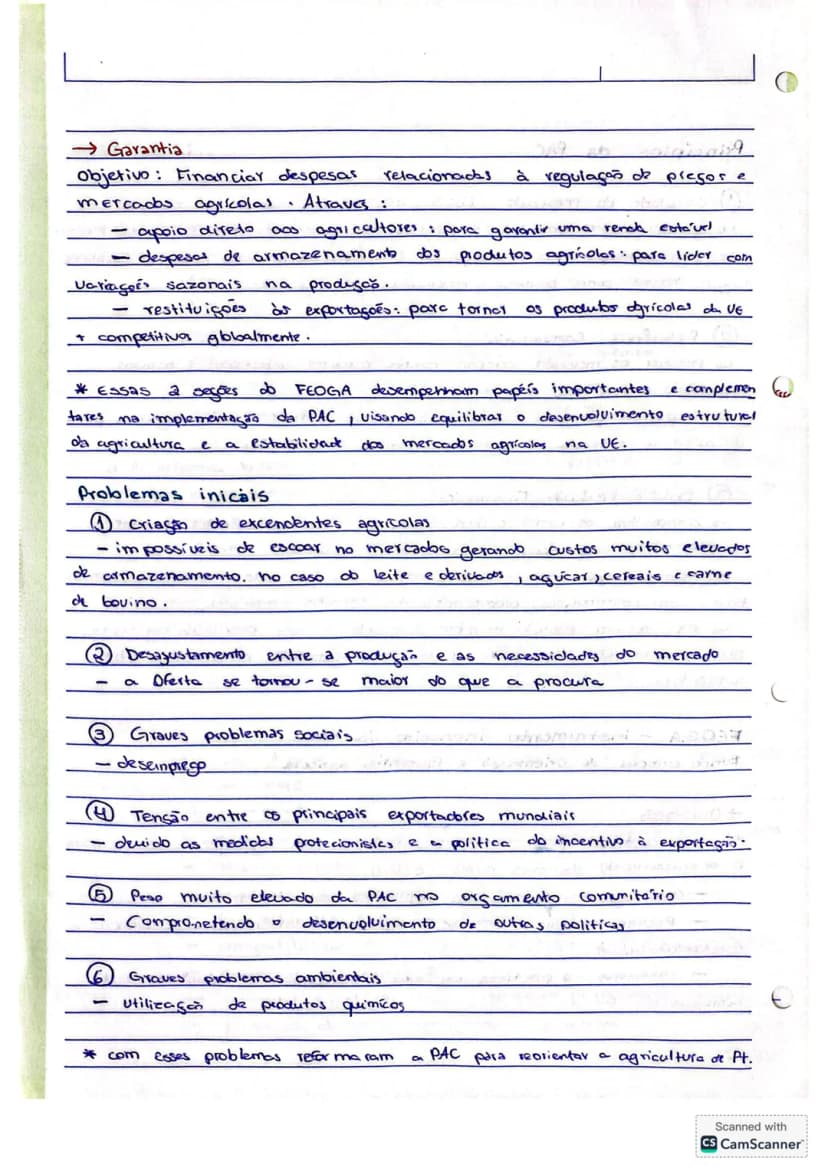 → Garantia
Objetivo: Financiar despesas relacionadas à regulação de preços e
mercados agrícolas. Através:
— apoio direto aos agricultores: para garantir uma renda estável
— despesas de armazenamento dos produtos agrícolas: para lider com
variações sazonais na produção.
— restituições às exportações: para tornar os produtos agrícolas da UE
+ competitivos globalmente.
* Essas 2 seções do FEOGA desempenham papéis importantes e complemen
tares na implementação da PAC, visando equilibrar o desenvolvimento estrutural
da agricultura e a estabilidade dos mercados agrícolas na UE.
Problemas iniciais
① Criação de excendentes agrícolas
- impossíveis de escoar no mercados gerando custos muitos elevados
de armazenamento. no caso do leite e derivados, açúcar, cereais e carne
de bovino.
② Desajustamento entre a produção e as necessidades do mercado
- a Oferta se tornou-se maior do que a procura
③ Graves problemas sociais
- desemprego
④ Tensão entre os principais exportadores mundiais
- devido as medidas protecionistas e a política do incentivo à exportação.
⑤ Peso muito elevado da PAC no orçamento comunitário
- Comprometendo o desenvolvimento de outras políticas
⑥ Graves problemas ambientais
- utilização de produtos químicos
* com esses problemas reformaram a PAC para reorientar a agricultura de Pt.
Scanned with
CS CamScanner